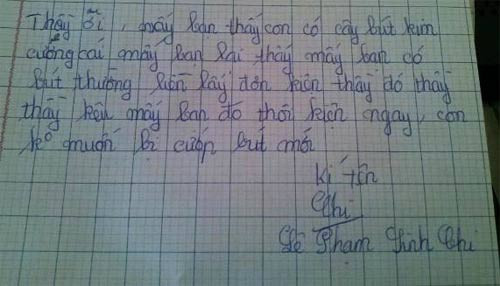 Thầy ơi, mấy bạn thấy con có cây bút kim
cương cái mấy bạn lại thấy mấy bạn có
bút thường liền lấy đơn kiện thầy đó thầy
thầy kêu mấy bạn đó thôi kiện ngay, con
kº muốn bị cướp bút mới
Kí tên
Chi
Lê Phạm Linh Chi